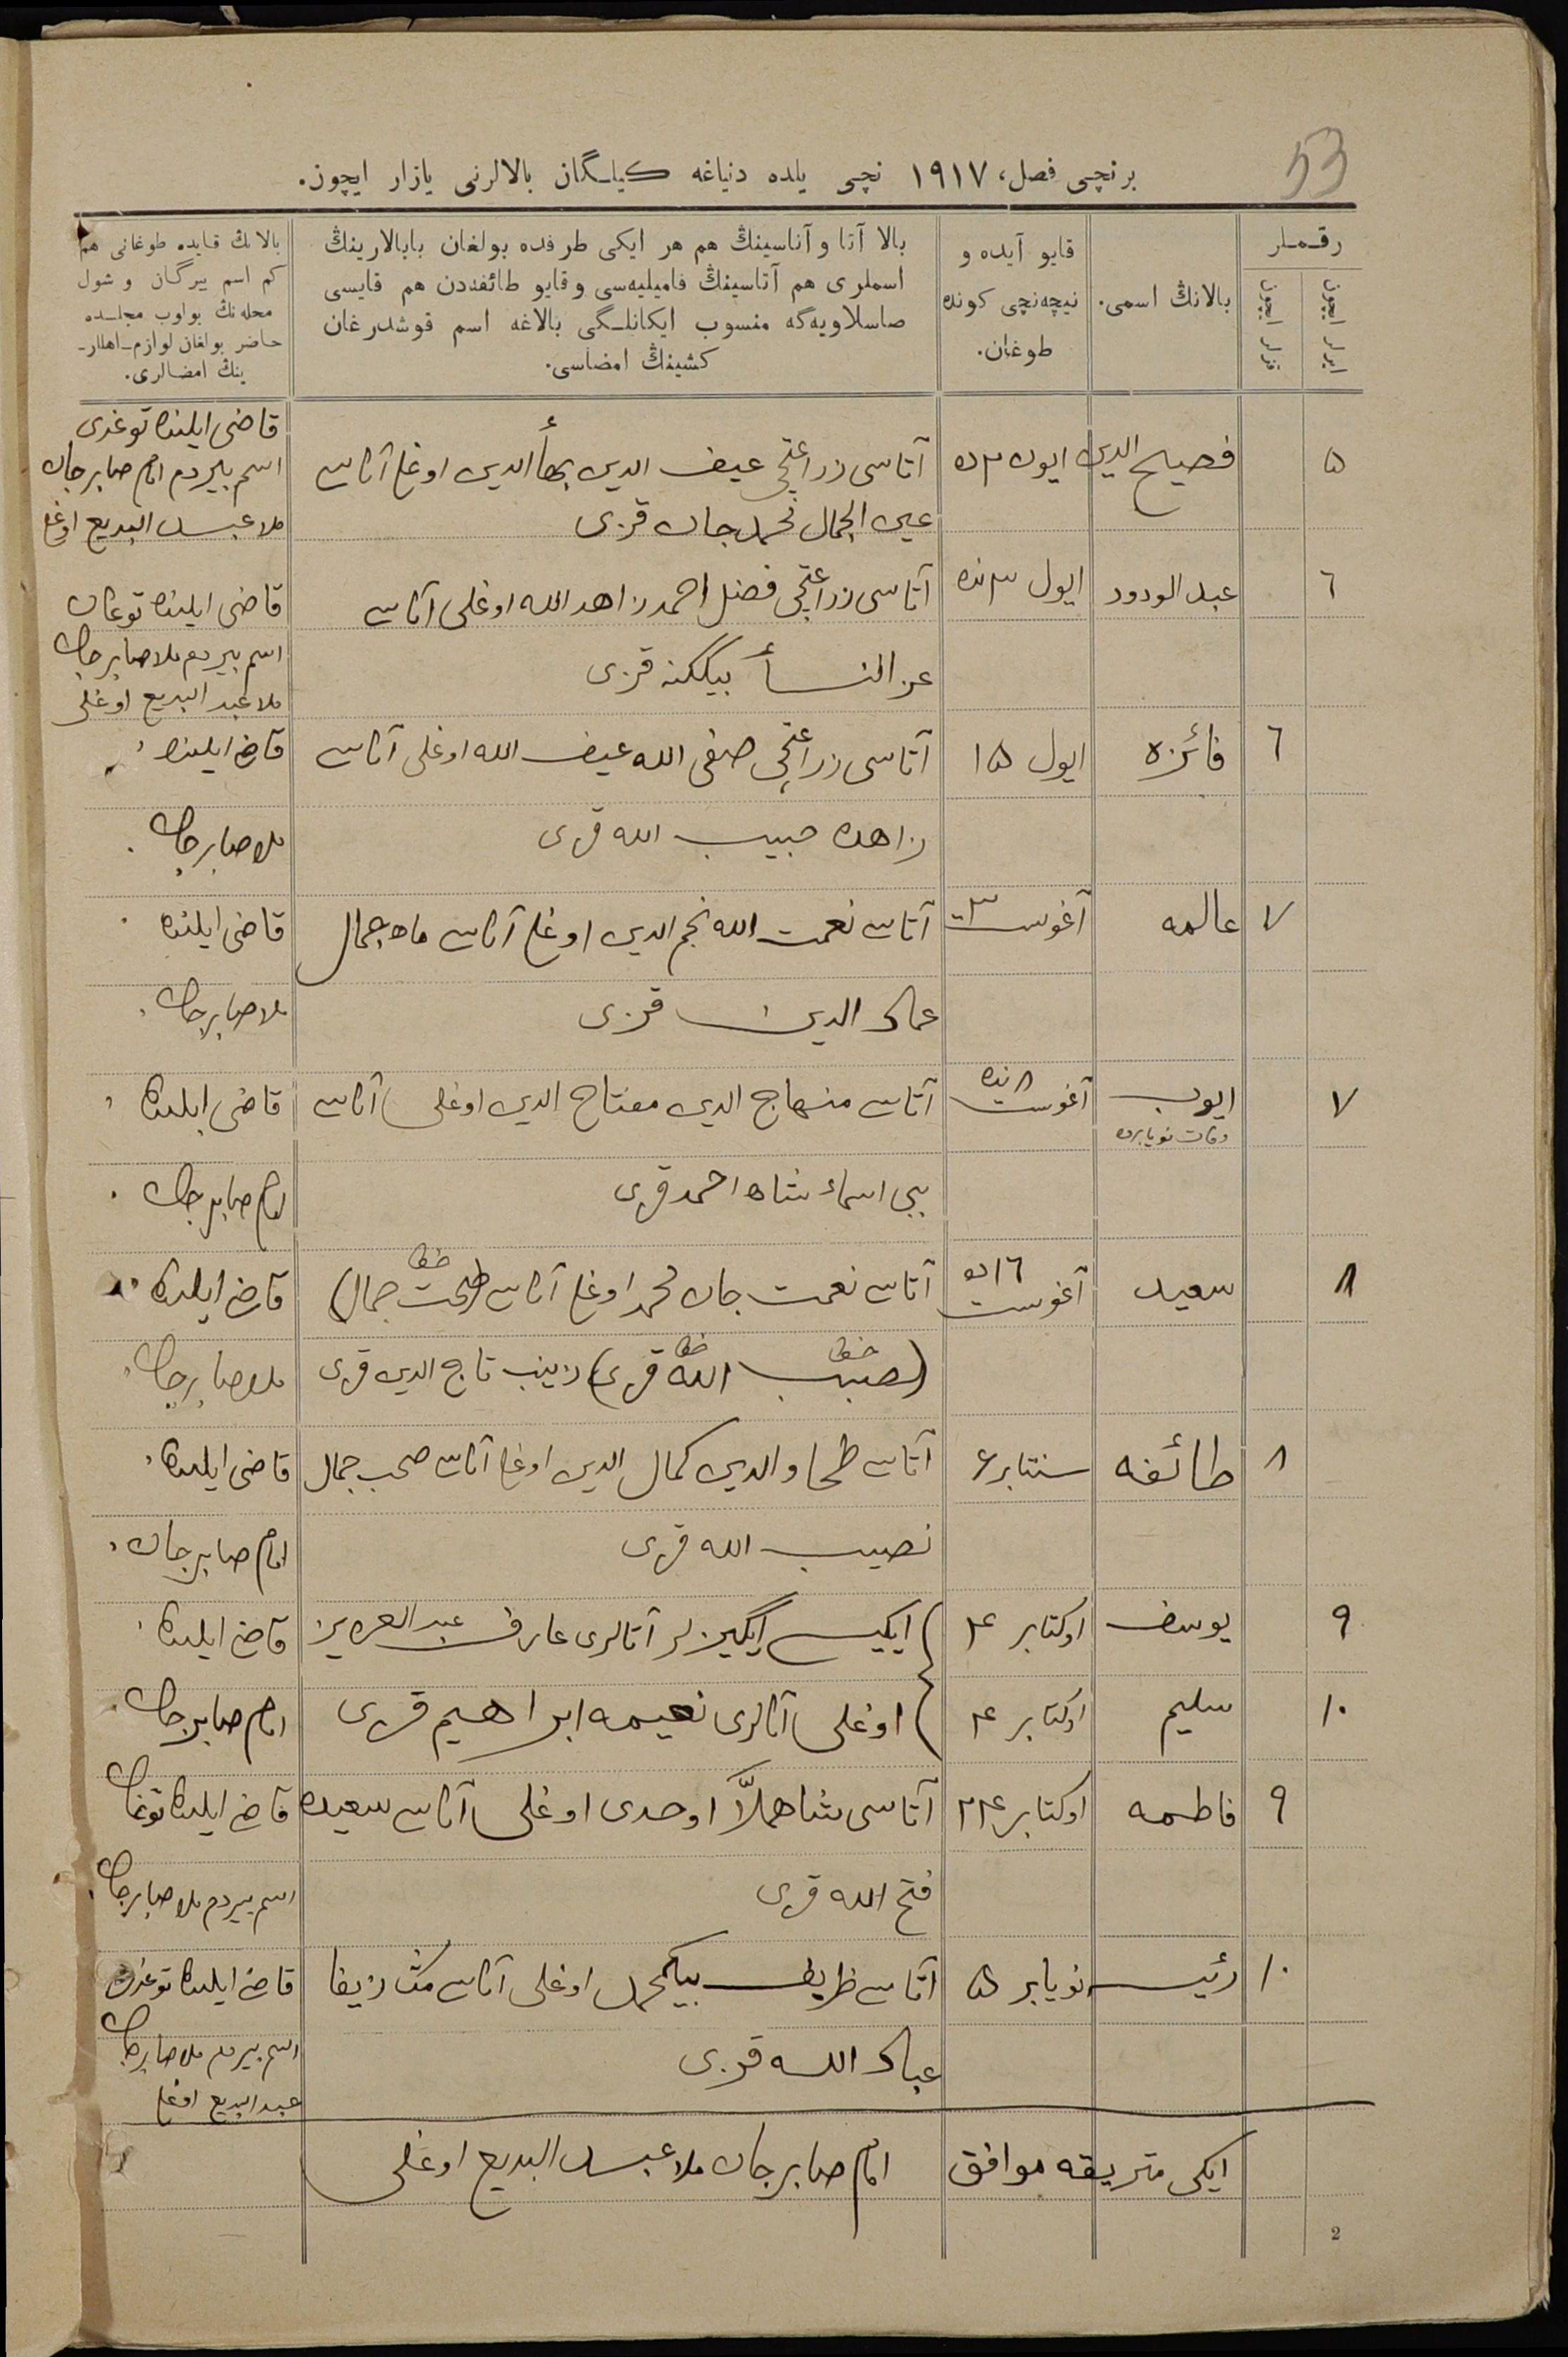 53
برنچی فصل، ١٩١٧ نچی یلده دنیاغه کیلگان بالالرنی یازار ایچون.
رقملر
ایرلر ایچون
قزلر ایچون
بالانڭ اسمی.
قایو آیده و
نیچه‌نچی کونده
طوغان.
بالا آتا و آناسینڭ هم هر ایکی طرفده بولغان بابالارینڭ
اسملری هم آتاسینڭ فامیلیه‌سی و قایو طائفه‌دن هم قایسی
صاسلاویه‌گه منسوب ایکانلگی بالاغه اسم قوشدرغان
کشینڭ امضاسی.
بالانڭ قایده طوغانی هم
کم اسم بیرگان و شول
محله‌نڭ بولوب مجلسده
حاضر بولغان لوازم اهللر-
ینڭ امضالری.
٥ فصیح الدین ایون آتاسی زراعتچی عیف الدین بهأ الدین اوغلی آناسی
عین الجمال محمدجان قزی
قاضی ایلنده توغدی
اسم بیردم امام صابرجان
ملا عبد البدیع اوغلی
٦ عبد الودود ایول ٣ نده آتاسی زراعتچی فضل احمد زاهد الله اوغلی آناسی
عز النسأ قزی
قاضی ایلنده توغان
اسم بیردم ملا صابرجان
ملا عبد البدیع اوغلی
٦ فائزه ایول ١٥ آتاسی زراعتچی صفی الله عیف الله اوغلی آناسی
زاهده حبیب الله قزی
قاضی ایلنده
ملا صابرجان
٧ عالمه آغوست ٣ آتاسی نعمت الله نجم الدین اوغلی آناسی ماه جمال
عماد الدین قزی
قاضی ایلنده
ملا صابرجان
٧ ایوب آغوست ٨ نده آتاسی منهاج الدین مفتاح الدین اوغلی آناسی
وفات نویابرده
بیبی اسماء شاه احمد قزی
قاضی ایلنده
امام صابرجان
٨ سعید آغوست ١٦ آتاسی نعمت جان محمد اوغلی آناسی جمال)
الله قزی) زینب تاج الدین قزی
قاضی ایلنده
ملا صابرجان
٨ طائفه سنتابر ٤ آتاسی کمال الدین اوغلی آناسی صحب جمال
نصیب الله قزی
قاضی ایلنده
امام صابرجان
٩ یوسف اوکتابر ایکیسی ایگیزلر آتالری عارف عبد العزیز
قاضی ایلنده
١٠ سلیم اوکتابر اوغلی آنالری نعیمه ابراهیم قزی
امام صابرجان
٩ فاطمه اوکتابر آتاسی شاهملّا اوحدی اوغلی آناسی سعیده
فتح الله قزی
قاضی ایلنده توغان
اسم بیردم ملا صابرجان
١٠ رئیسه نویابر ٥ آتاسی ظریف بیکمحمد اوغلی آناسی
عباد الله قزی
قاضی ایلنده توغدی
اسم بیردم ملا صابرجان
عبد البدیع اوغلی
ایکی متریقه موافق امام صابرجان ملا عبد البدیع اوغلی
2